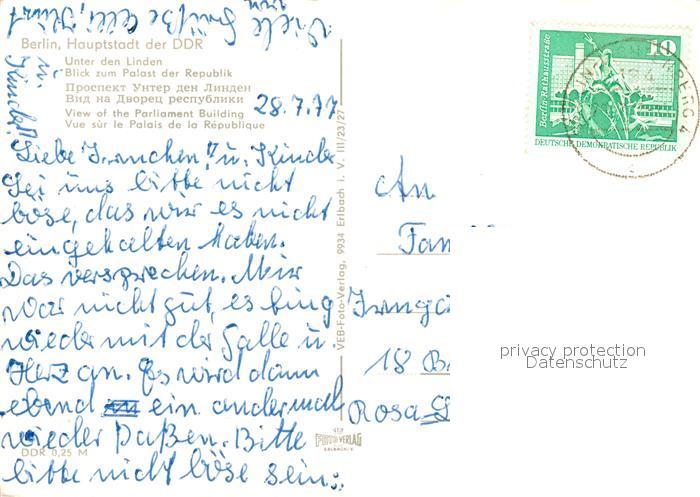 Viele Grüße Elli, Kurt
u.
Kinder!!
Berlin, Hauptstadt der DDR
Unter den Linden
Blick zum Palast der Republik
Проспект Унтер ден Линден
Вид на Дворец республики
View of the Parliament Building
Vue sur le Palais de la République
28.7.77
Liebe Irmchen! u. Kinder
Sei uns bitte nicht
böse, das wir es nicht
eingehalten haben.
Das versprechen. Mir
war nicht gut, es bing
wieder mit der Galle u.
Herz an. Es wird dann
ebend ein andermal
wieder Paßen. Bitte
bitte nicht böse sein.
DDR 0,25 M
VEB-Foto-Verlag, 9934 Erlbach I. V. III/23/27
FOTO VERLAG
ERLBACH
10
Berlin · Rathausstraße
DEUTSCHE DEMOKRATISCHE REPUBLIK
An
Fam
Irmga
18 B
Rosa-
privacy protection
Datenschutz